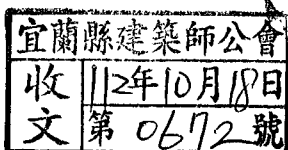 宜蘭縣建築師公會
收文
112年10月18日
第0672號